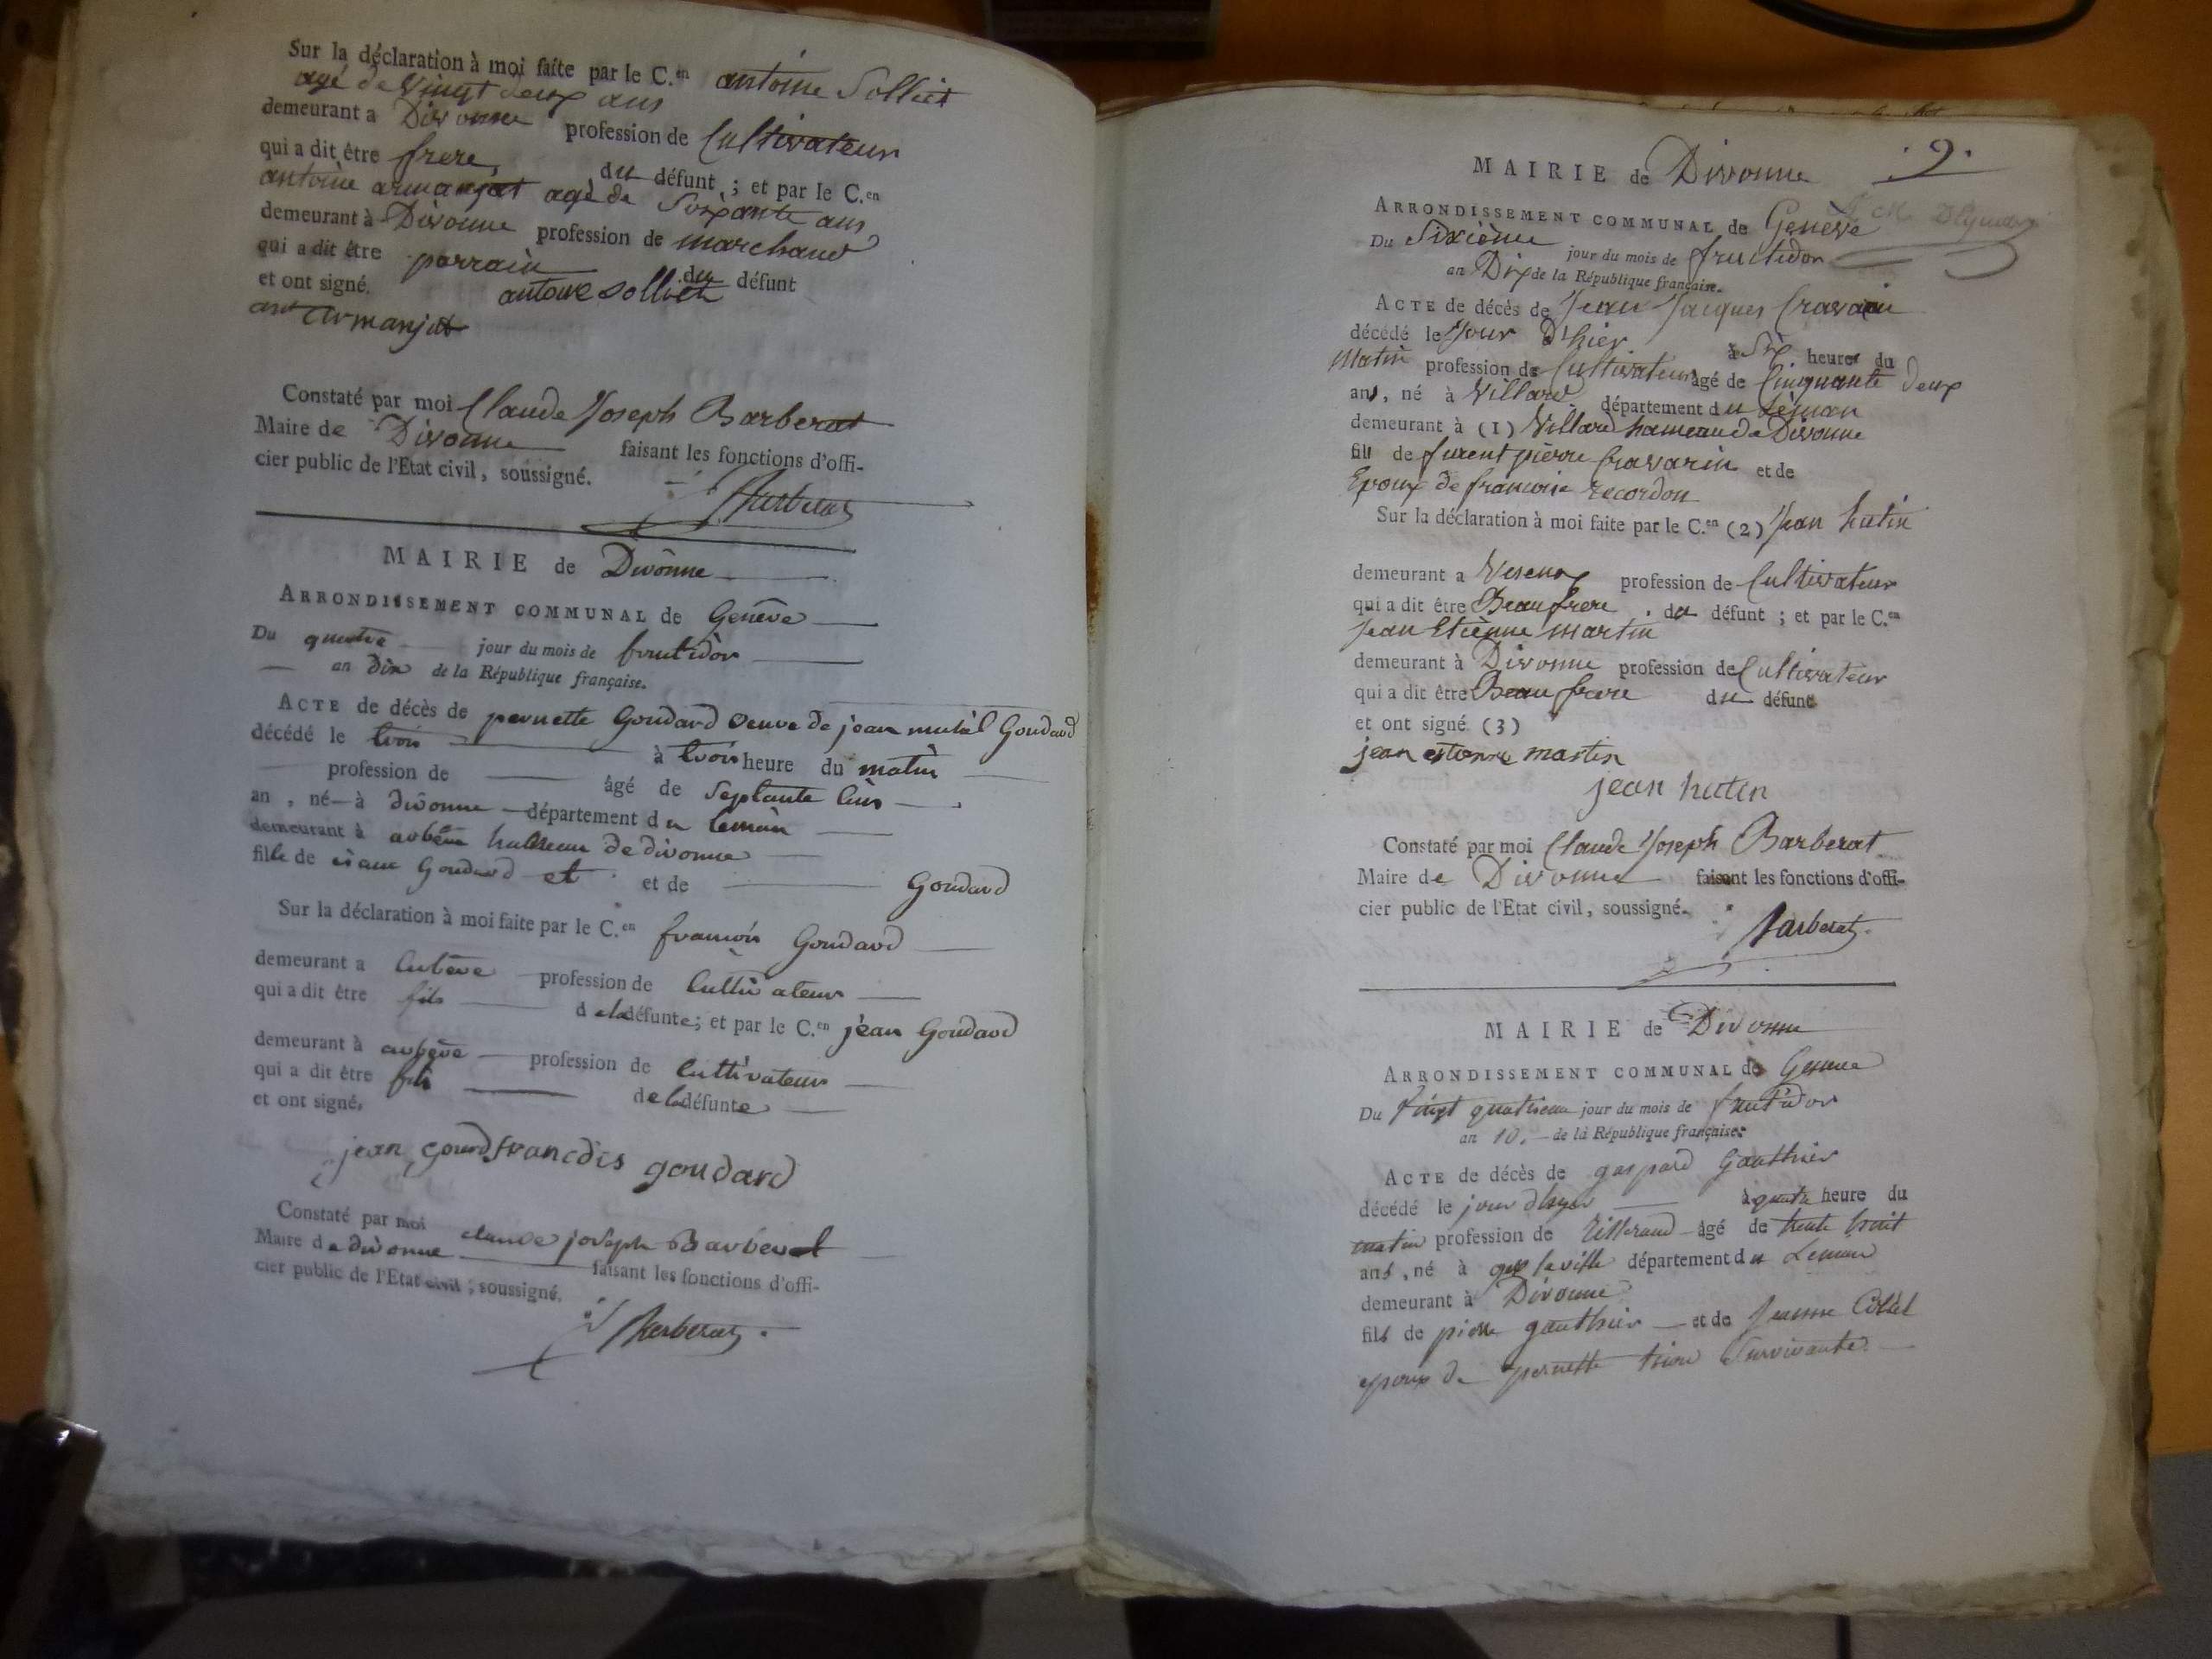 Sur la déclaration à moi faite par le C.en antoine Solliet
agé de Vingt deux ans
demeurant a Divonne profession de Cultivateur
qui a dit être frere du défunt ; et par le C.en
antoine armanjat agé de Soixante ans
demeurant à Divonne profession de marchand
qui a dit être parrain du défunt
et ont signé. antoine solliet
ant armanjat
Constaté par moi Claude Joseph Barberat
Maire de Divonne faisant les fonctions d'offi-
cier public de l'Etat civil, soussigné.
Barberat
MAIRIE de Divônne
ARRONDISSEMENT COMMUNAL de Genêve
Du quatre jour du mois de fructidor
an dix de la République française.
ACTE de décès de pernette Goudard veuve de jean Goudard
décédé le trois à trois heure du matin
profession de âgé de Septante
an , né à divonne département du leman
demeurant à arbêre hameau de divonne
fille de Goudard et et de Goudard
Sur la déclaration à moi faite par le C.en francois Goudard
demeurant a arbère profession de Cultivateur
qui a dit être fils de la défunte; et par le C.en jean Goudard
demeurant à arbere profession de Cultivateur
qui a dit être fils de la défunte
et ont signé.
jean francois goudard
Constaté par moi claude joseph Barberat
Maire de divonne faisant les fonctions d'offi-
cier public de l'Etat civil, soussigné.
Barberat
.9.
MAIRIE de Divonne
ARRONDISSEMENT COMMUNAL de Geneve
Du Sixième jour du mois de fructidor
an Dix de la République française.
ACTE de décès de Jean Jacques Cravarin
décédé le Jour d'hier à Six heures du
Matin profession de Cultivateur âgé de Cinquante deux
ans, né à Villard département du Léman
demeurant à (1) Villard hameau de Divonne
fils de furent pierre Cravarin et de
Epoux de francoise recordon
Sur la déclaration à moi faite par le C.en (2) Jean hutin
demeurant a Vesenex profession de Cultivateur
qui a dit être Beau frere du défunt ; et par le C.en
Jean Etiènne martin
demeurant à Divonne profession de Cultivateur
qui a dit être Beau frere du défunt
et ont signé (3)
jean estienne martin
jean hutin
Constaté par moi Claude Joseph Barberat
Maire de Divonne faisant les fonctions d'offi-
cier public de l'Etat civil, soussigné.
Barberat
MAIRIE de Divonne
ARRONDISSEMENT COMMUNAL de Geneve
Du Vingt quatrieme jour du mois de fructidor
an 10. de la République française.
ACTE de décès de gaspard Gauthier
décédé le jour dhyer à quatre heure du
matin profession de Tisserand âgé de trente huit
ans, né à gex la ville département du Leman
demeurant à Divonne
fils de pierre gauthier et de Jeanne
epoux de pernette Survivante.